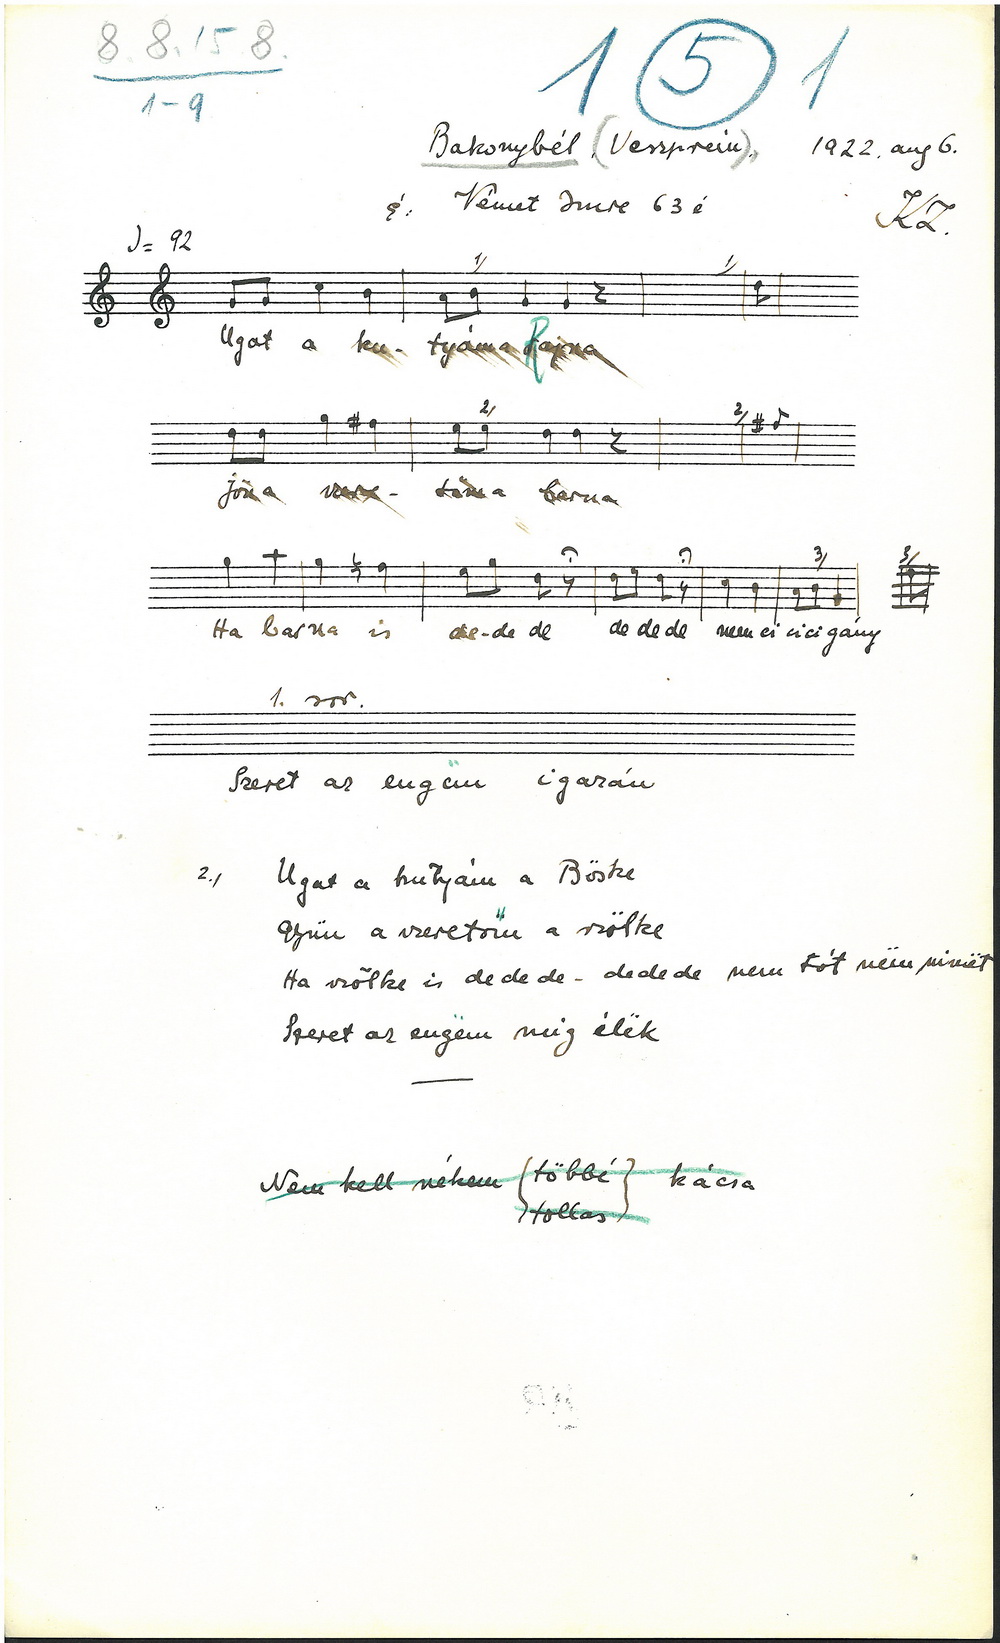 8. 8. 15 8.
1-9
1 5 1
Bakonybél (Veszprém). 1922. aug 6.
é: Német Imre 63 é
KZ.
♩= 92
1/ 1/
Ugat a ku- tyáma Rajna
2/ 2/
Jön a szere- tőm a barna
3/ 3/
Ha barna is de-de de de de de nem ci cici gány
1. sor.
Szeret az engöm igazán
2./ Ugat a kutyám a Böske
Gyün a szeretőm a szőlke
Ha szőlke is de de de - de de de nem tót nëm nimët
Szeret az engëm mig élëk
Nem kell nékem {többé} kácsa
tollas